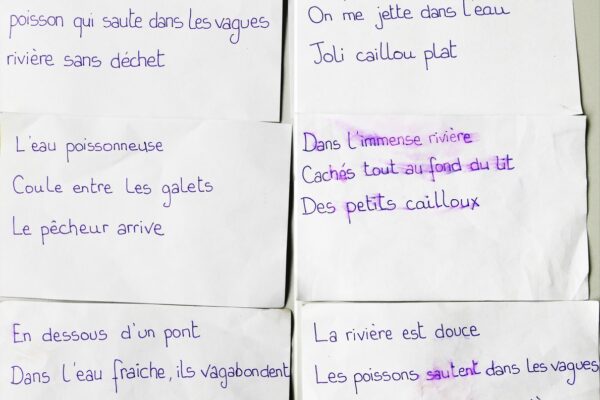 poisson qui saute dans les vagues
rivière sans déchet
On me jette dans l'eau
Joli caillou plat
L'eau poissonneuse
Coule entre les galets
Le pêcheur arrive
Dans l'immense rivière
Cachés tout au fond du lit
Des petits cailloux
En dessous d'un pont
Dans l'eau fraiche, ils vagabondent
La rivière est douce
Les poissons sautent dans les vagues